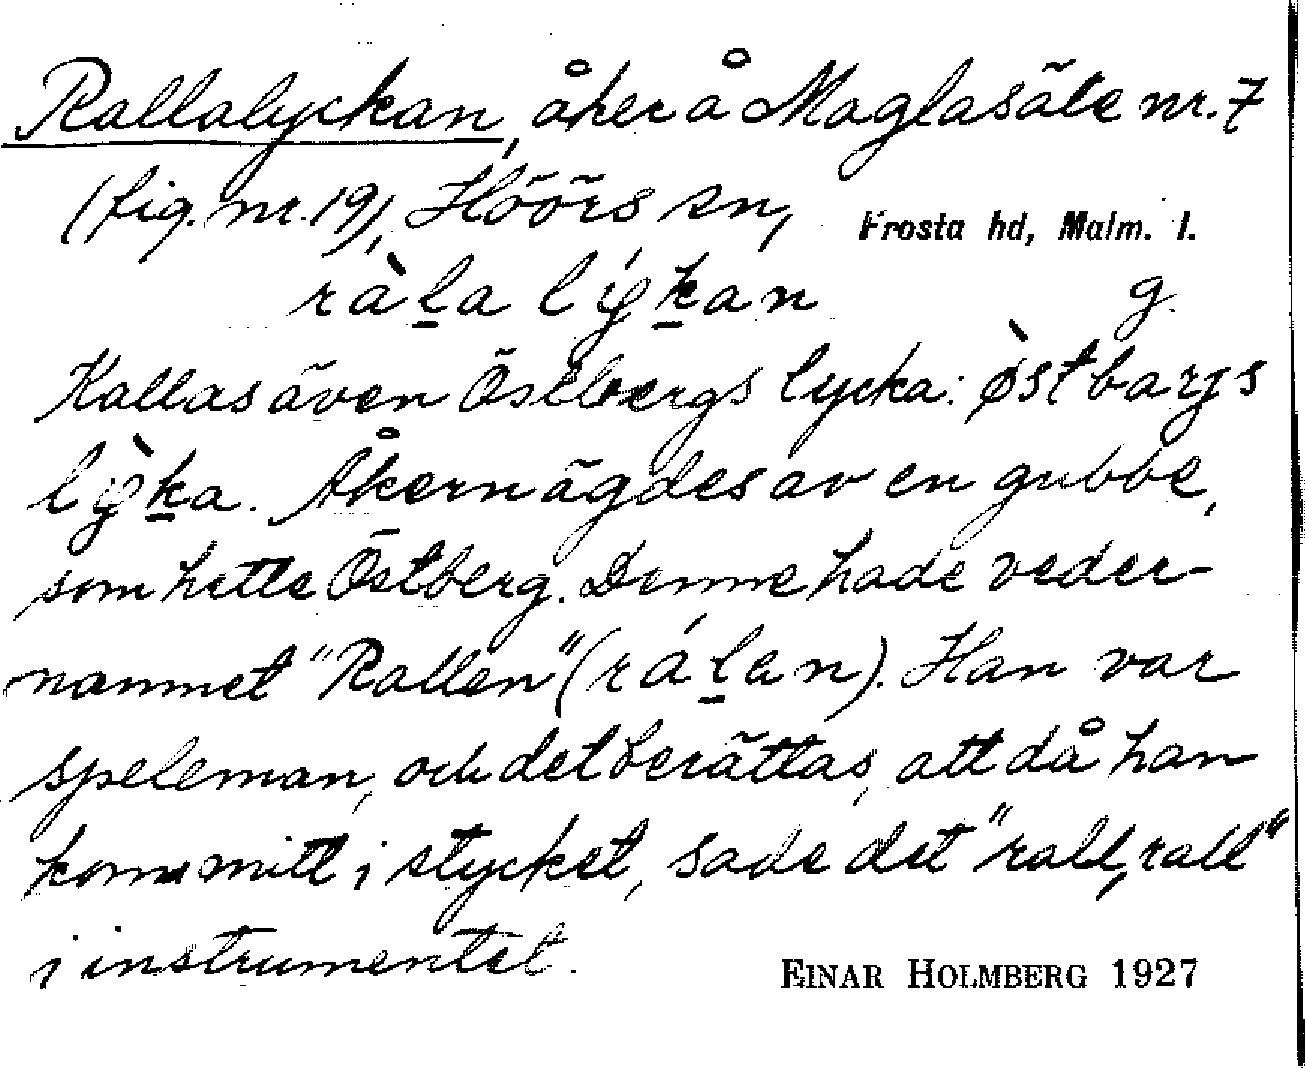 Rallalyckan, åker å Maglasäte nr. 7
(fig. nr. 19), Höörs sn, Frosta hd, Malm. l.
ràl̠a lýk̠an g.
Kallas även Östbergs lycka: østbarjs
lỳk̠a. Åkern ägdes av en gubbe,
som hette Östberg. Denne hade veder-
namnet "Rallen" (rál̠en). Han var
speleman, och det berättas, att då han
kom mitt i stycket, sade det "rall, rall"
i instrumentet.
EINAR HOLMBERG 1927